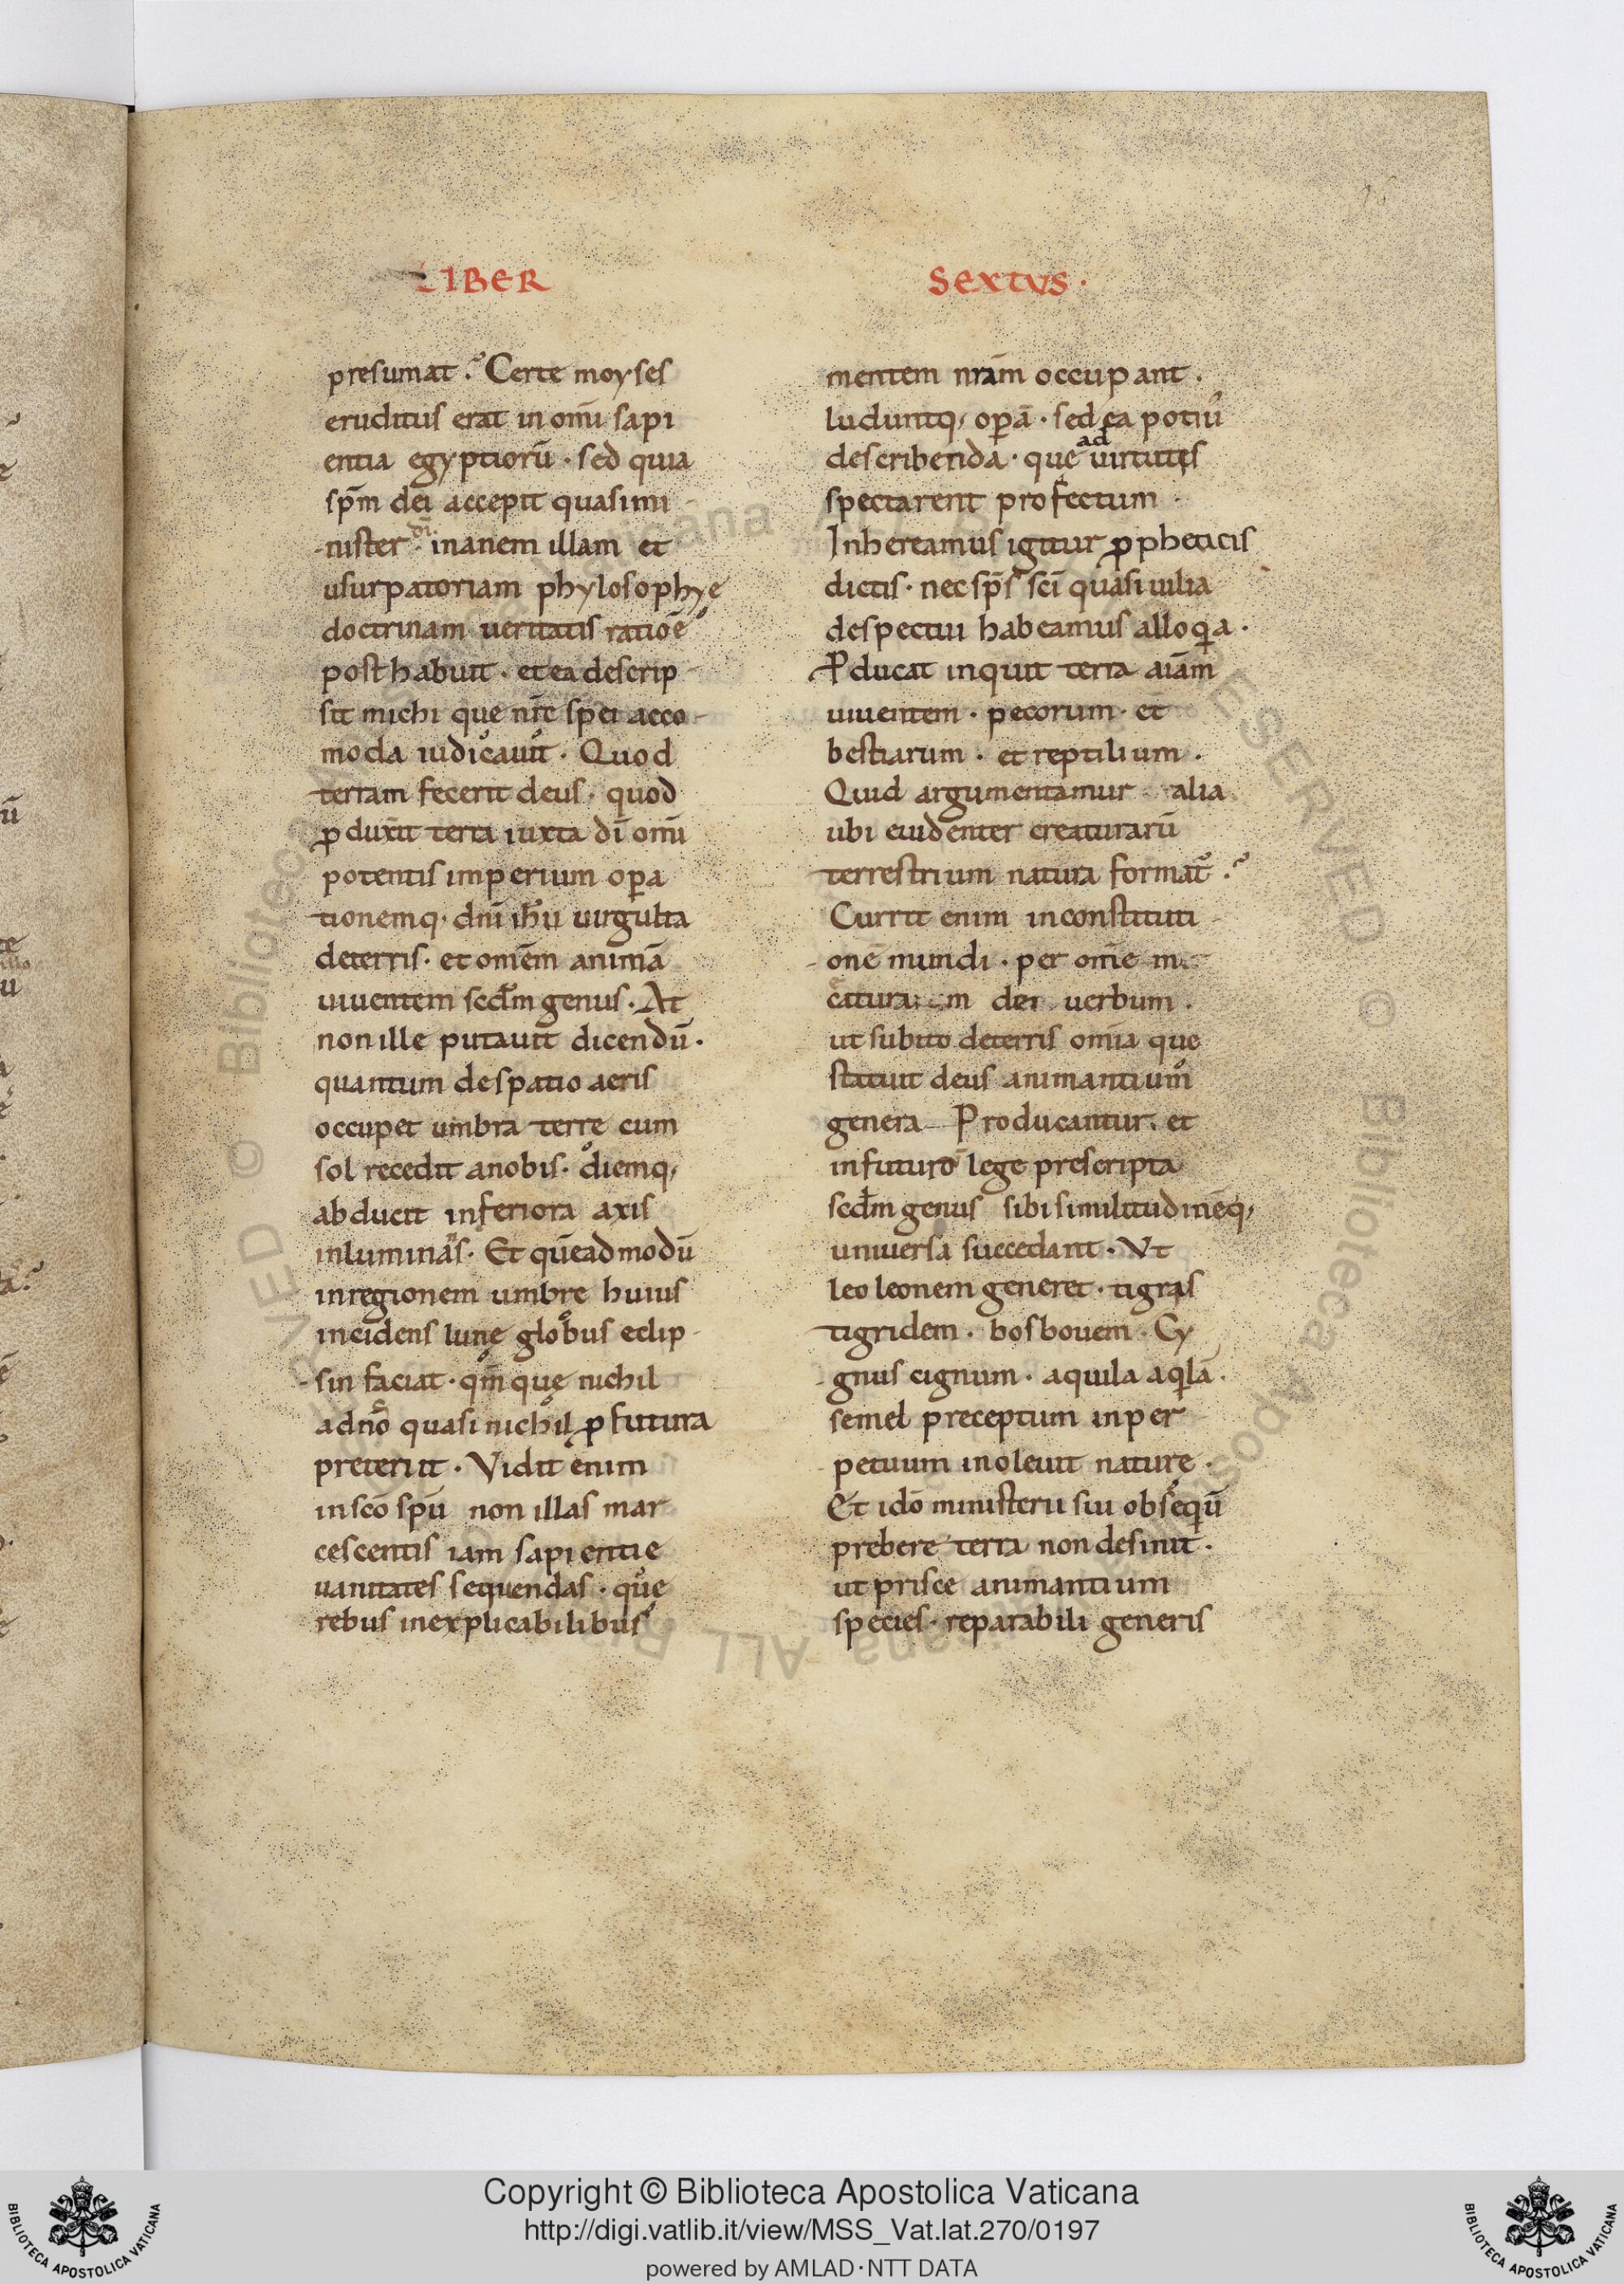 LIBER
presumat. Certe moyses
eruditus erat in om̄i sapi
entia egyptiorū · sed quia
sp̄m dei accepit quasi mi
nister dī · inanem illam et
usurpatoriam phylosophye
doctrinam ueritatis ratioē
posthabuit · et ea descrip
sit michi que nr̄e spei acco-
moda iudicauit · Quod
terram fecerit deus · quod
ꝓduxit terra iuxta dī om̄i
potentis imperium oꝑa
tionemq· dn̄i ih̄u uirgulta
de terris · et omēm animā
uiuentem scđm genus · At
non ille putauit dicendū ·
quantum de spatio aeris
occupet umbra terre cum
sol recedit a nobis · diemq,
abducit inferiora axis
inluminās · Et quēadmodū
in regionem umbre huius
incidens lunę globus eclip-
sin faciat · qm̄ quę nichil
ad nō quasi nichil ꝓfutura
preteriit · Vidit enim
in sc̄o sp̄u non illas mar
cescentis iam sapientie
uanitates sequendas · que
rebus inexplicabilibus
SEXTVS ·
mentem nr̄am occupant ·
luduntq, oꝑā · sed ea potiu᷒
describenda · que ad uirtutęs
spectarent profectum ·
Inhereamus igitur ꝓpheticis
dictis · nec sp̄s sc̄i quasi uilia
despectui habeamus alloqia ·
Ꝓducat inquit terra aīam
uiuentem · pecorum · et
bestiarum · et reptilium ·
Quid argumentamur alia
ubi euidenter creaturarū
terrestrium natura format᷒ ·
Currit enim in constituti
onē mundi · per omē
dei uerbum ·
ut subito de terris om̄ia que
statuit deus animantium
genera Producantur · et
in futurō lege prescripta
scđm genus sibi similitudinēq,
uniuersa succedant · Vt
leo leonem generet · tigras
tigridem · bos bouem · Cy
gnus cignum · aquila aqlā ·
semel preceptum in per
petuum inoleuit naturę ·
Et idō ministerii sui obsequū
prebere terra non desinit ·
ut prisce animantium
species · reparabili generis
Copyright © Biblioteca Apostolica Vaticana
http://digi.vatlib.it/view/MSS_Vat.lat.270/0197
powered by AMLAD·NTT DATA
BIBLIOTECA APOSTOLICA VATICANA
BIBLIOTECA APOSTOLICA VATICANA